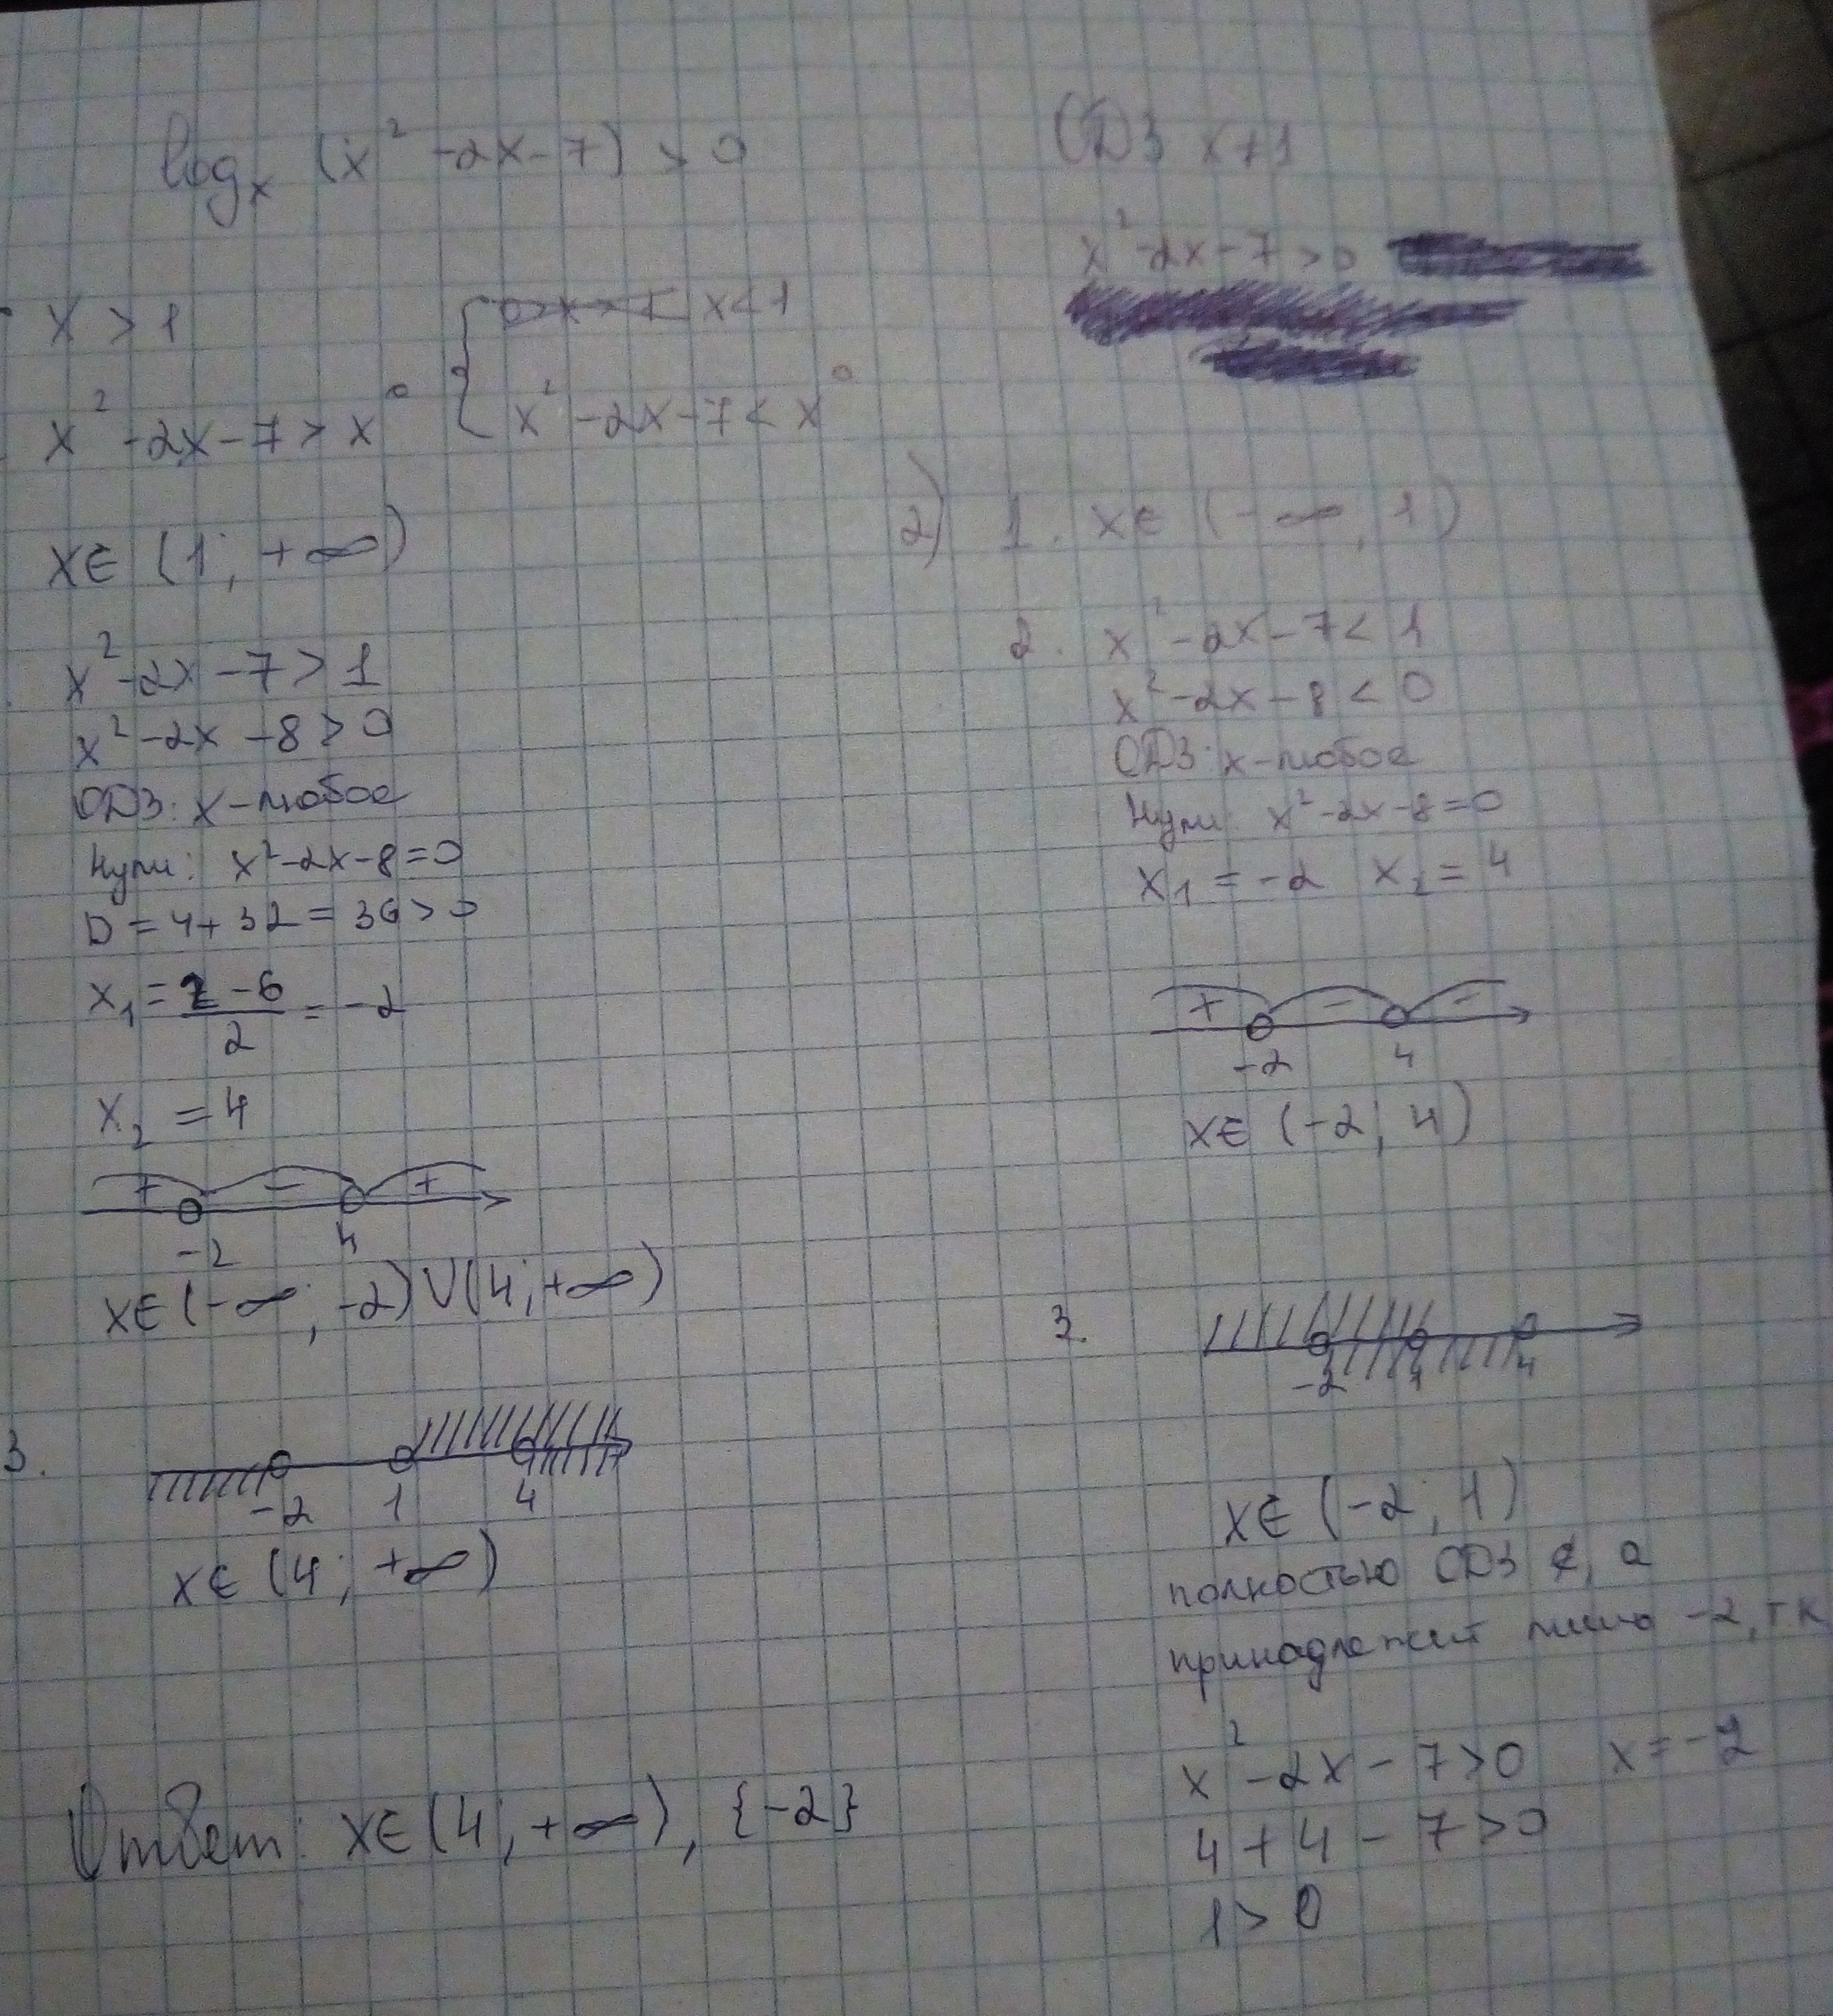 logₓ (x² -2x-7) > 0
ОДЗ x≠1
x²-2x-7>0
x > 1
x² -2x-7 > x⁰
x<1
x² -2x-7 < x⁰
x∈ (1; +∞)
x²-2x-7>1
x²-2x-8>0
ОДЗ: x-любое
Нули: x²-2x-8=0
D = 4+32 = 36>0
x₁ = (2-6)/2 = -2
x₂ = 4
+ - +
-2 4
x∈(-∞; -2)∪(4;+∞)
3.
-2 1 4
x∈ (4; +∞)
2) 1. x∈ (-∞; 1)
2. x²-2x-7< 1
x²-2x-8 < 0
ОДЗ: x-любое
Нули: x²-2x-8=0
x₁ = -2 x₂ = 4
+ - -
-2 4
x∈ (-2; 4)
3.
-2 1 4
x∈ (-2; 1)
полностью ОДЗ ∉, а
принадлежит лишь -2, т.к
x²-2x-7>0 x=-2
4+4-7>0
1>0
Ответ: x∈(4; +∞), {-2}